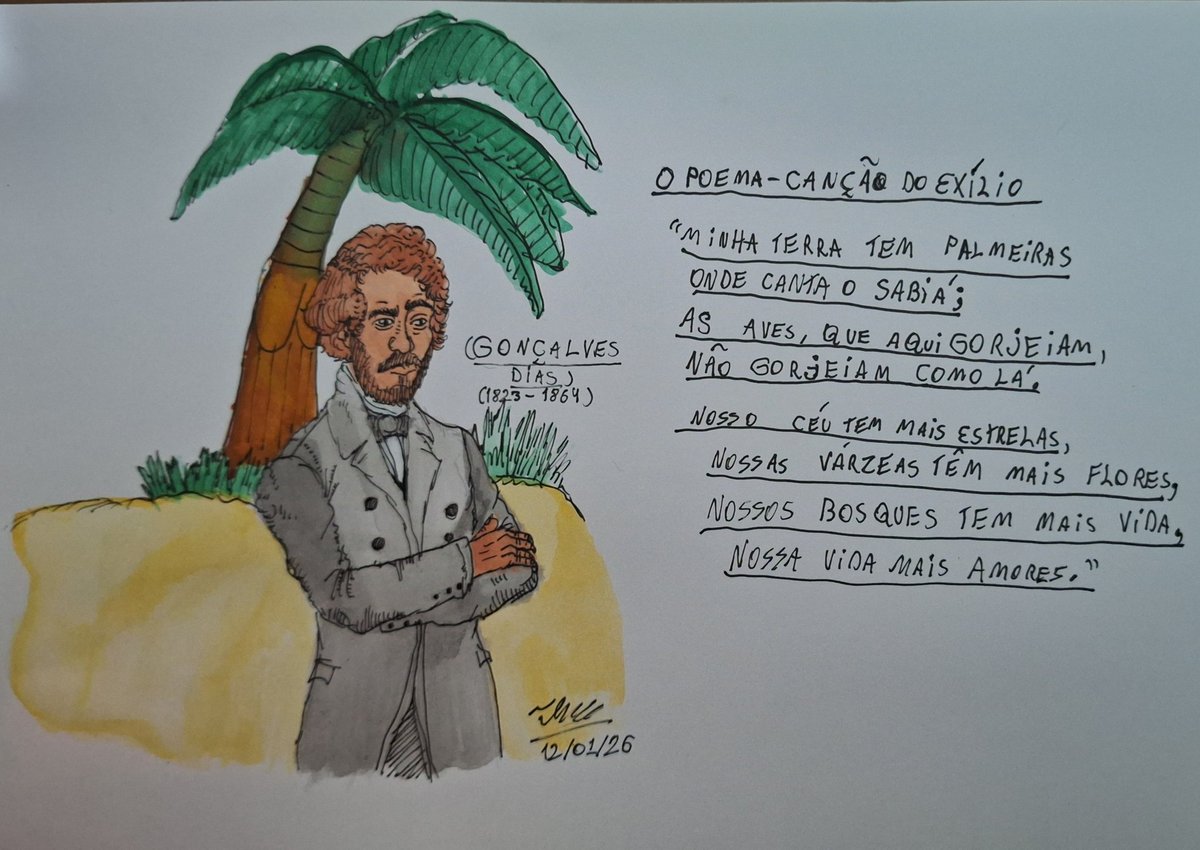 (GONÇALVES
DIAS)
(1823-1864)
O POEMA-CANÇÃO DO EXÍLIO
"MINHA TERRA TEM PALMEIRAS
ONDE CANTA O SABIÁ;
AS AVES, QUE AQUI GORJEIAM,
NÃO GORJEIAM COMO LÁ.
NOSSO CÉU TEM MAIS ESTRELAS,
NOSSAS VÁRZEAS TÊM MAIS FLORES,
NOSSOS BOSQUES TEM MAIS VIDA,
NOSSA VIDA MAIS AMORES."
12/01/26